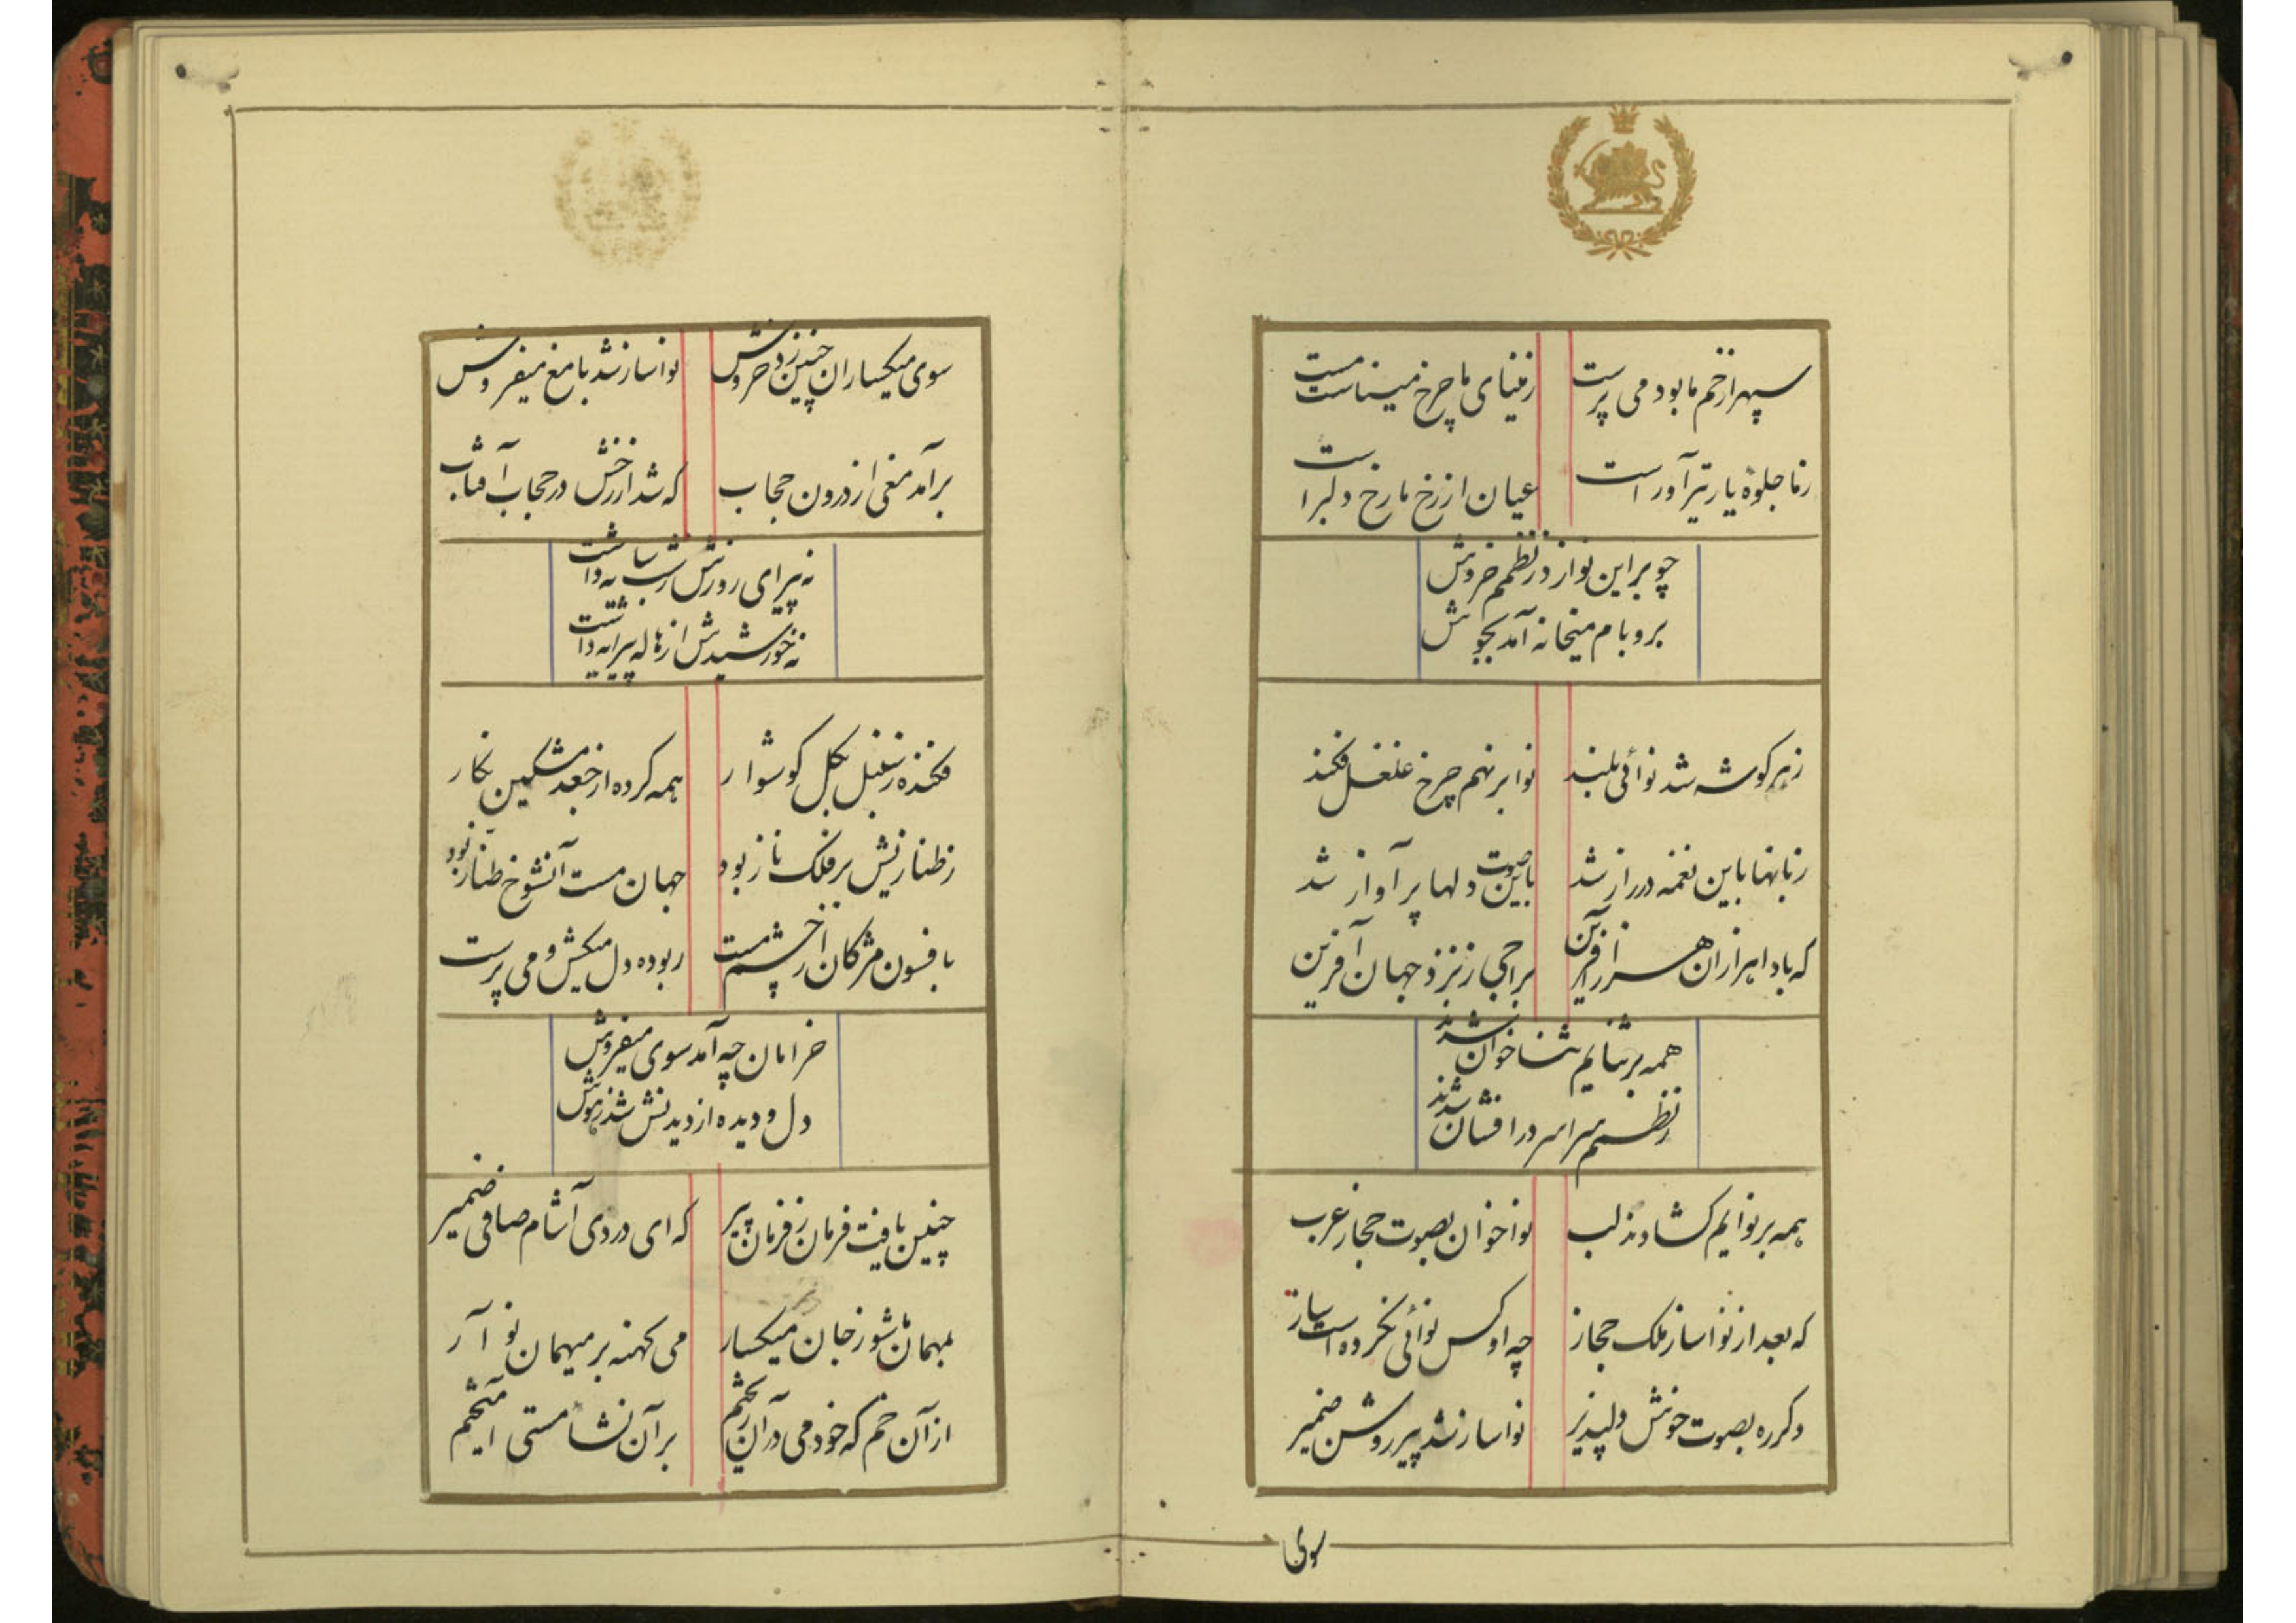 سپهر از خم ما بود می پرست
ز مینای ما چرخ میناست مست
ز ما جلوهٔ یار تیرآور است
عیان از رخ ما رخ دلبر است
چو بر این نوا زد ز نظمم خروش
بر و بام میخانه آمد بجوش
ز هر گوشه شد نوائی بلند
نوا بر نهم چرخ غلغل فکند
زبانها باین نغمه در راز شد
باین صوت دلها پر آواز شد
که بادا هزاران هزار آفرین
براجی ز نزد جهان آفرین
همه بر ثنایم ثنا خوان شدند
ز نظمم سراسر در افشان شدند
همه بر نوایم گشادند لب
نوا خوان بصوت حجاز عرب
که بعد از نواساز ملک حجاز
چه او کس نوائی نکرده است ساز
دگر ره بصوت خوش دلپذیر
نواساز شد پیر روشن ضمیر
سوی
سوی میکساران چنین زد خروش
نواساز شد با مغ میفروش
برآمد مغی از درون حجاب
که شد از رخش در حجاب آفتاب
نه پیرای روزش ز شب سایه داشت
نه خورشیدش از هاله پیرایه داشت
فکنده ز سنبل بگل گوشوار
همه کرده از جعد مشکین نگار
ز طنازیش بر فلک ناز بود
جهان مست آنشوخ طناز بود
بافسون مژگان از چشم مست
ربوده دل میکش و می پرست
خرامان چه آمد سوی میفروش
دل و دیده از دیدنش شد ز هوش
چنین یافت فرمان ز فرمان پیر
که ای دردی آشام صافی ضمیر
بمهمان شو ز جان میکسار
می کهنه بر میهمان نو آر
از آن خم که خود می در آن ریختم
بر آن نشأ مستی آمیختم